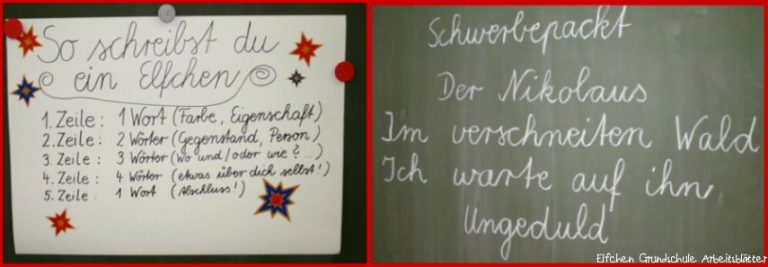 So schreibst du
ein Elfchen
1. Zeile: 1 Wort (Farbe, Eigenschaft)
2. Zeile: 2 Wörter (Gegenstand, Person)
3. Zeile: 3 Wörter (Wo und/oder wie?...)
4. Zeile: 4 Wörter (etwas über dich selbst!)
5. Zeile: 1 Wort (Abschluss!)
Schwerbepackt
Der Nikolaus
Im verschneiten Wald
Ich warte auf ihn,
Ungeduld
Elfchen Grundschule Arbeitsblätter